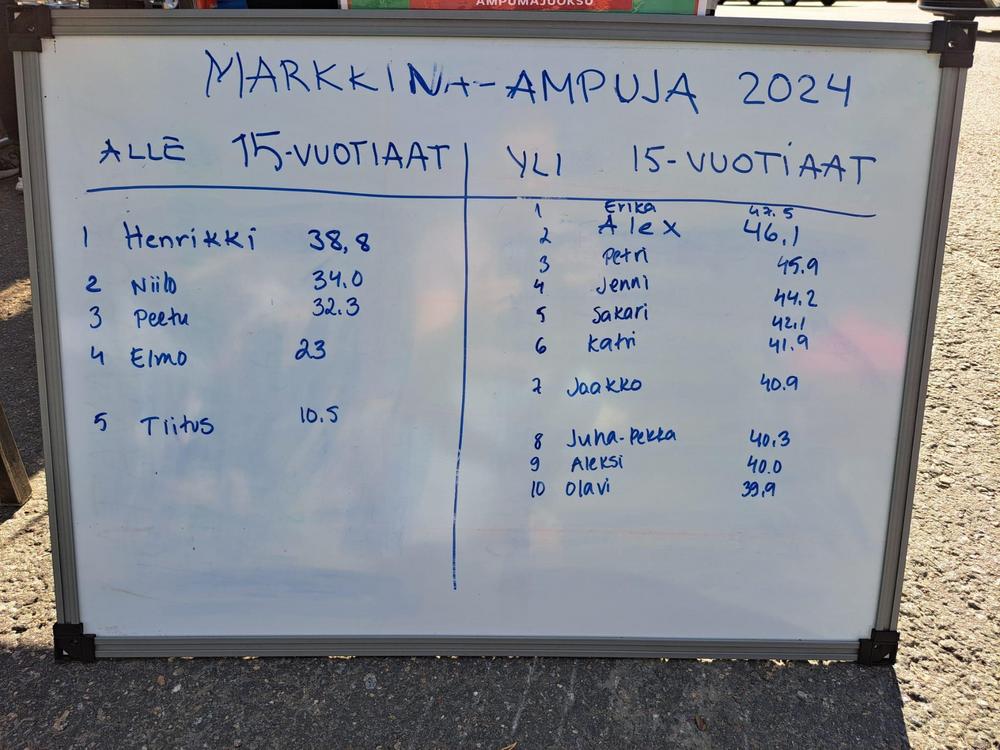 AMPUMAJUOKSU
MARKKINA-AMPUJA 2024
ALLE 15-VUOTIAAT
1 Henrikki 38,8
2 Niilo 34.0
3 Peetu 32.3
4 Elmo 23
5 Tiitus 10.5
YLI 15-VUOTIAAT
1 Erika 47.5
2 Alex 46.1
3 Petri 45.9
4 Jenni 44.2
5 Sakari 42.1
6 Katri 41.9
7 Jaakko 40.9
8 Juha-Pekka 40.3
9 Aleksi 40.0
10 Olavi 39.9